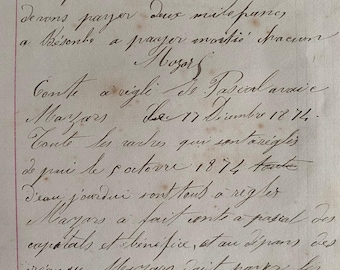 devons payer deux mile francs
a Bésonbo a payer moitié chacun
Mazars
Conte a règlé de Pascal avaic
Mazars Le 17 Dicembre 1874
Toute les autres qui sont a régler
de puis le 5 octovre 1874 toute
d'eau jourdui sont tous a régler
Mazars a fait conte a pascal des
capitals et benefice, et au dépans des
Mazars doit payer les